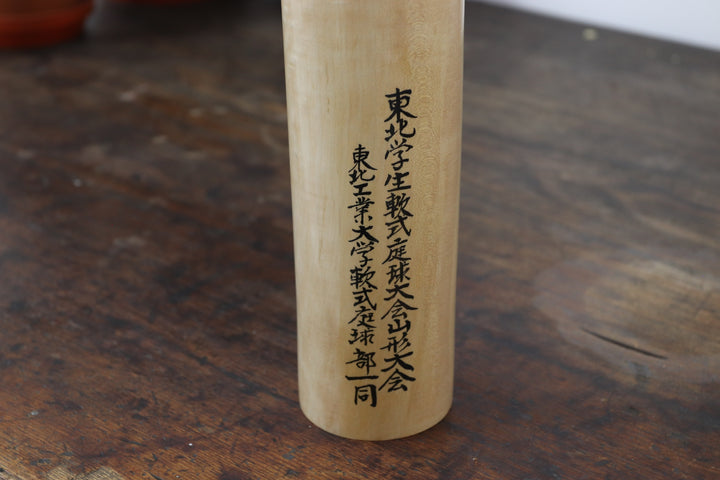 東北学生軟式庭球大会山形大会
東北工業大学軟式庭球部一同